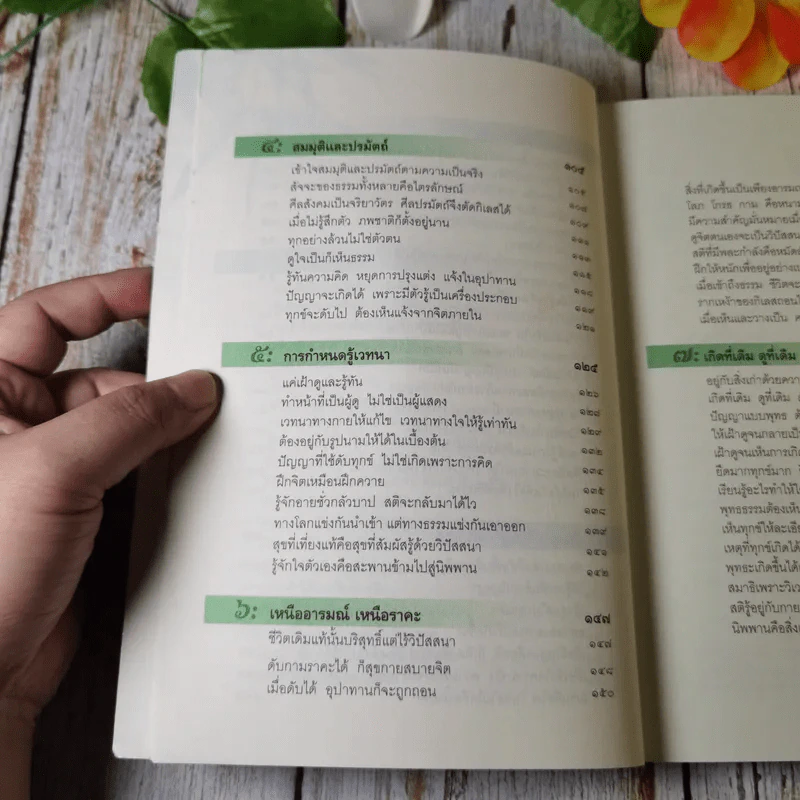 ๔: สมมุติและปรมัตถ์ ๑๐๕
เข้าใจสมมุติและปรมัตถ์ตามความเป็นจริง
สัจจะของธรรมทั้งหลายคือไตรลักษณ์
ศีลสังคมเป็นจริยาวัตร ศีลปรมัตถ์จึงตัดกิเลสได้ ๑๐๗
เมื่อไม่รู้สึกตัว ภพชาติก็ตั้งอยู่นาน ๑๐๙
ทุกอย่างล้วนไม่ใช่ตัวตน ๑๑๑
ดูใจเป็นก็เห็นธรรม
รู้ทันความคิด หยุดการปรุงแต่ง แจ้งในอุปาทาน ๑๑๕
ปัญญาจะเกิดได้ เพราะมีตัวรู้เป็นเครื่องประกอบ ๑๑๘
ทุกข์จะดับไป ต้องเห็นแจ้งจากจิตภายใน ๑๒๑
๕: การกำหนดรู้เวทนา ๑๒๕
แค่เฝ้าดูและรู้ทัน ๑๒๖
ทำหน้าที่เป็นผู้ดู ไม่ใช่เป็นผู้แสดง ๑๒๘
เวทนาทางกายให้แก้ไข เวทนาทางใจให้รู้เท่าทัน ๑๒๙
ต้องอยู่กับรูปนามให้ได้ในเบื้องต้น ๑๓๒
ปัญญาที่ใช้ดับทุกข์ ไม่ใช่เกิดเพราะการคิด ๑๓๔
ฝึกจิตเหมือนฝึกควาย ๑๓๕
รู้จักอายชั่วกลัวบาป สติจะกลับมาได้ไว ๑๓๘
ทางโลกแข่งกันนำเข้า แต่ทางธรรมแข่งกันเอาออก ๑๓๙
สุขที่เที่ยงแท้คือสุขที่สัมผัสรู้ด้วยวิปัสสนา ๑๔๑
รู้จักใจตัวเองคือสะพานข้ามไปสู่นิพพาน ๑๔๒
๖: เหนืออารมณ์ เหนือราคะ ๑๔๗
ชีวิตเดิมแท้นั้นบริสุทธิ์แต่ไร้วิปัสสนา ๑๔๗
ดับกามราคะได้ ก็สุขกายสบายจิต ๑๔๘
เมื่อดับได้ อุปาทานก็จะถูกถอน ๑๕๐
สิ่งที่เกิดขึ้นเป็นเพียงอารมณ์
โลภ โกรธ กาม คือหนาม
มีความสำคัญมั่นหมายเมื่อ
ดูจิตตนเองจะเป็นวิปัสสนา
สติที่มีพละกำลังคือหมัด
ฝึกให้หนักเพื่ออยู่อย่าง
เมื่อเข้าถึงธรรม ชีวิตจะ
รากเหง้าของกิเลสถอน
เมื่อเห็นและวางเป็น
๗: เกิดที่เดิม ดูที่เดิม
อยู่กับสิ่งเก่าด้วยความ
เกิดที่เดิม ดูที่เดิม
ปัญญาแบบพุทธ
ให้เฝ้าดูจนกลายเป็น
เฝ้าดูจนเห็นการเกิด
ยึดมากทุกข์มาก
เรียนรู้อะไรทำให้
พุทธธรรมต้องเห็น
เห็นทุกข์ให้ละเอียด
เหตุที่ทุกข์เกิดได้
พุทธะเกิดขึ้นได้
สมาธิเพราะวิเวก
สติรู้อยู่กับกาย
นิพพานคือสิ่ง